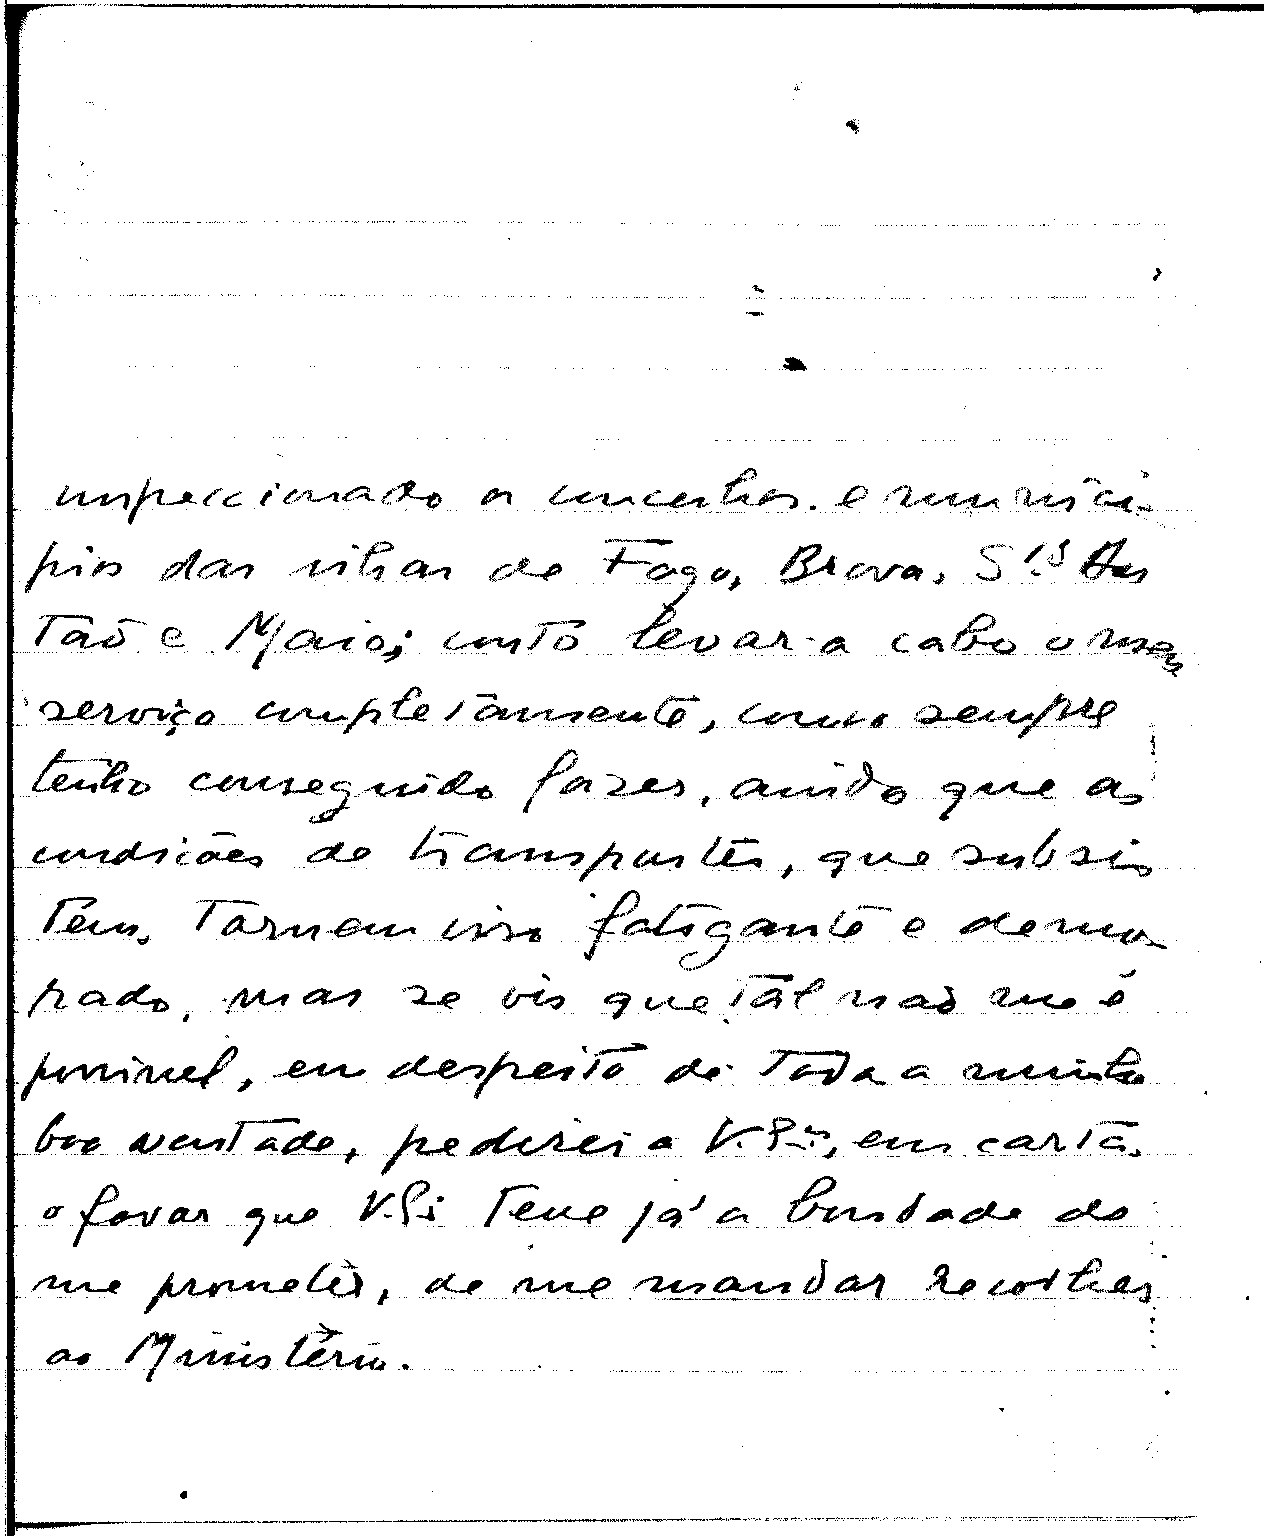 inspeccionado os concelhos e municí-
pios das ilhas de Fogo, Brava, S.to An
tão e Maio; conto levar a cabo o meu
serviço completamente, como sempre
tenho conseguido fazer, ainda que as
condições de transportes, que subsis
tem, tornem isso fatigante e demo-
rado, mas se vir que tal não me é
possivel, em despeito de toda a minha
boa vontade, pedirei a V. Ex.ª, em carta,
o favor que V. Ex.ª teve já a bondade de
me prometer, de me mandar recolher
ao Ministério.